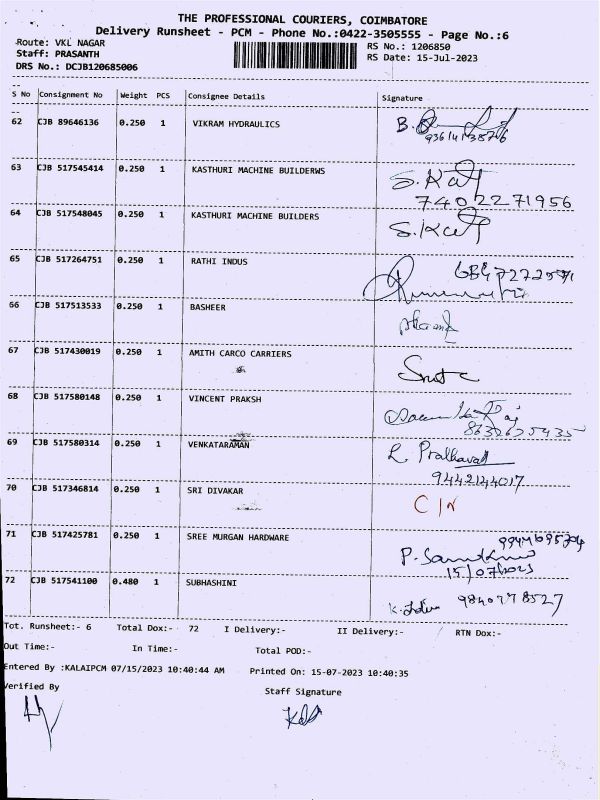 THE PROFESSIONAL COURIERS, COIMBATORE
Delivery Runsheet - PCM - Phone No.:0422-3505555 - Page No.:6
Route: VKL NAGAR RS No.: 1206850
Staff: PRASANTH RS Date: 15-Jul-2023
DRS No.: DCJB120685006
S No Consignment No Weight PCS Consignee Details Signature
62 CJB 89646136 0.250 1 VIKRAM HYDRAULICS
63 CJB 517545414 0.250 1 KASTHURI MACHINE BUILDERWS S.Kat
7402271956
64 CJB 517548045 0.250 1 KASTHURI MACHINE BUILDERS S.Kat
65 CJB 517264751 0.250 1 RATHI INDUS
66 CJB 517513533 0.250 1 BASHEER
67 CJB 517430019 0.250 1 AMITH CARCO CARRIERS
68 CJB 517580148 0.250 1 VINCENT PRAKSH
69 CJB 517580314 0.250 1 VENKATARAMAN
9442144017
70 CJB 517346814 0.250 1 SRI DIVAKAR C/N
71 CJB 517425781 0.250 1 SREE MURGAN HARDWARE
15/07/2023
72 CJB 517541100 0.480 1 SUBHASHINI
Tot. Runsheet:- 6 Total Dox:- 72 I Delivery:- II Delivery:- RTN Dox:-
Out Time:- In Time:- Total POD:-
Entered By :KALAIPCM 07/15/2023 10:40:44 AM Printed On: 15-07-2023 10:40:35
Verified By Staff Signature